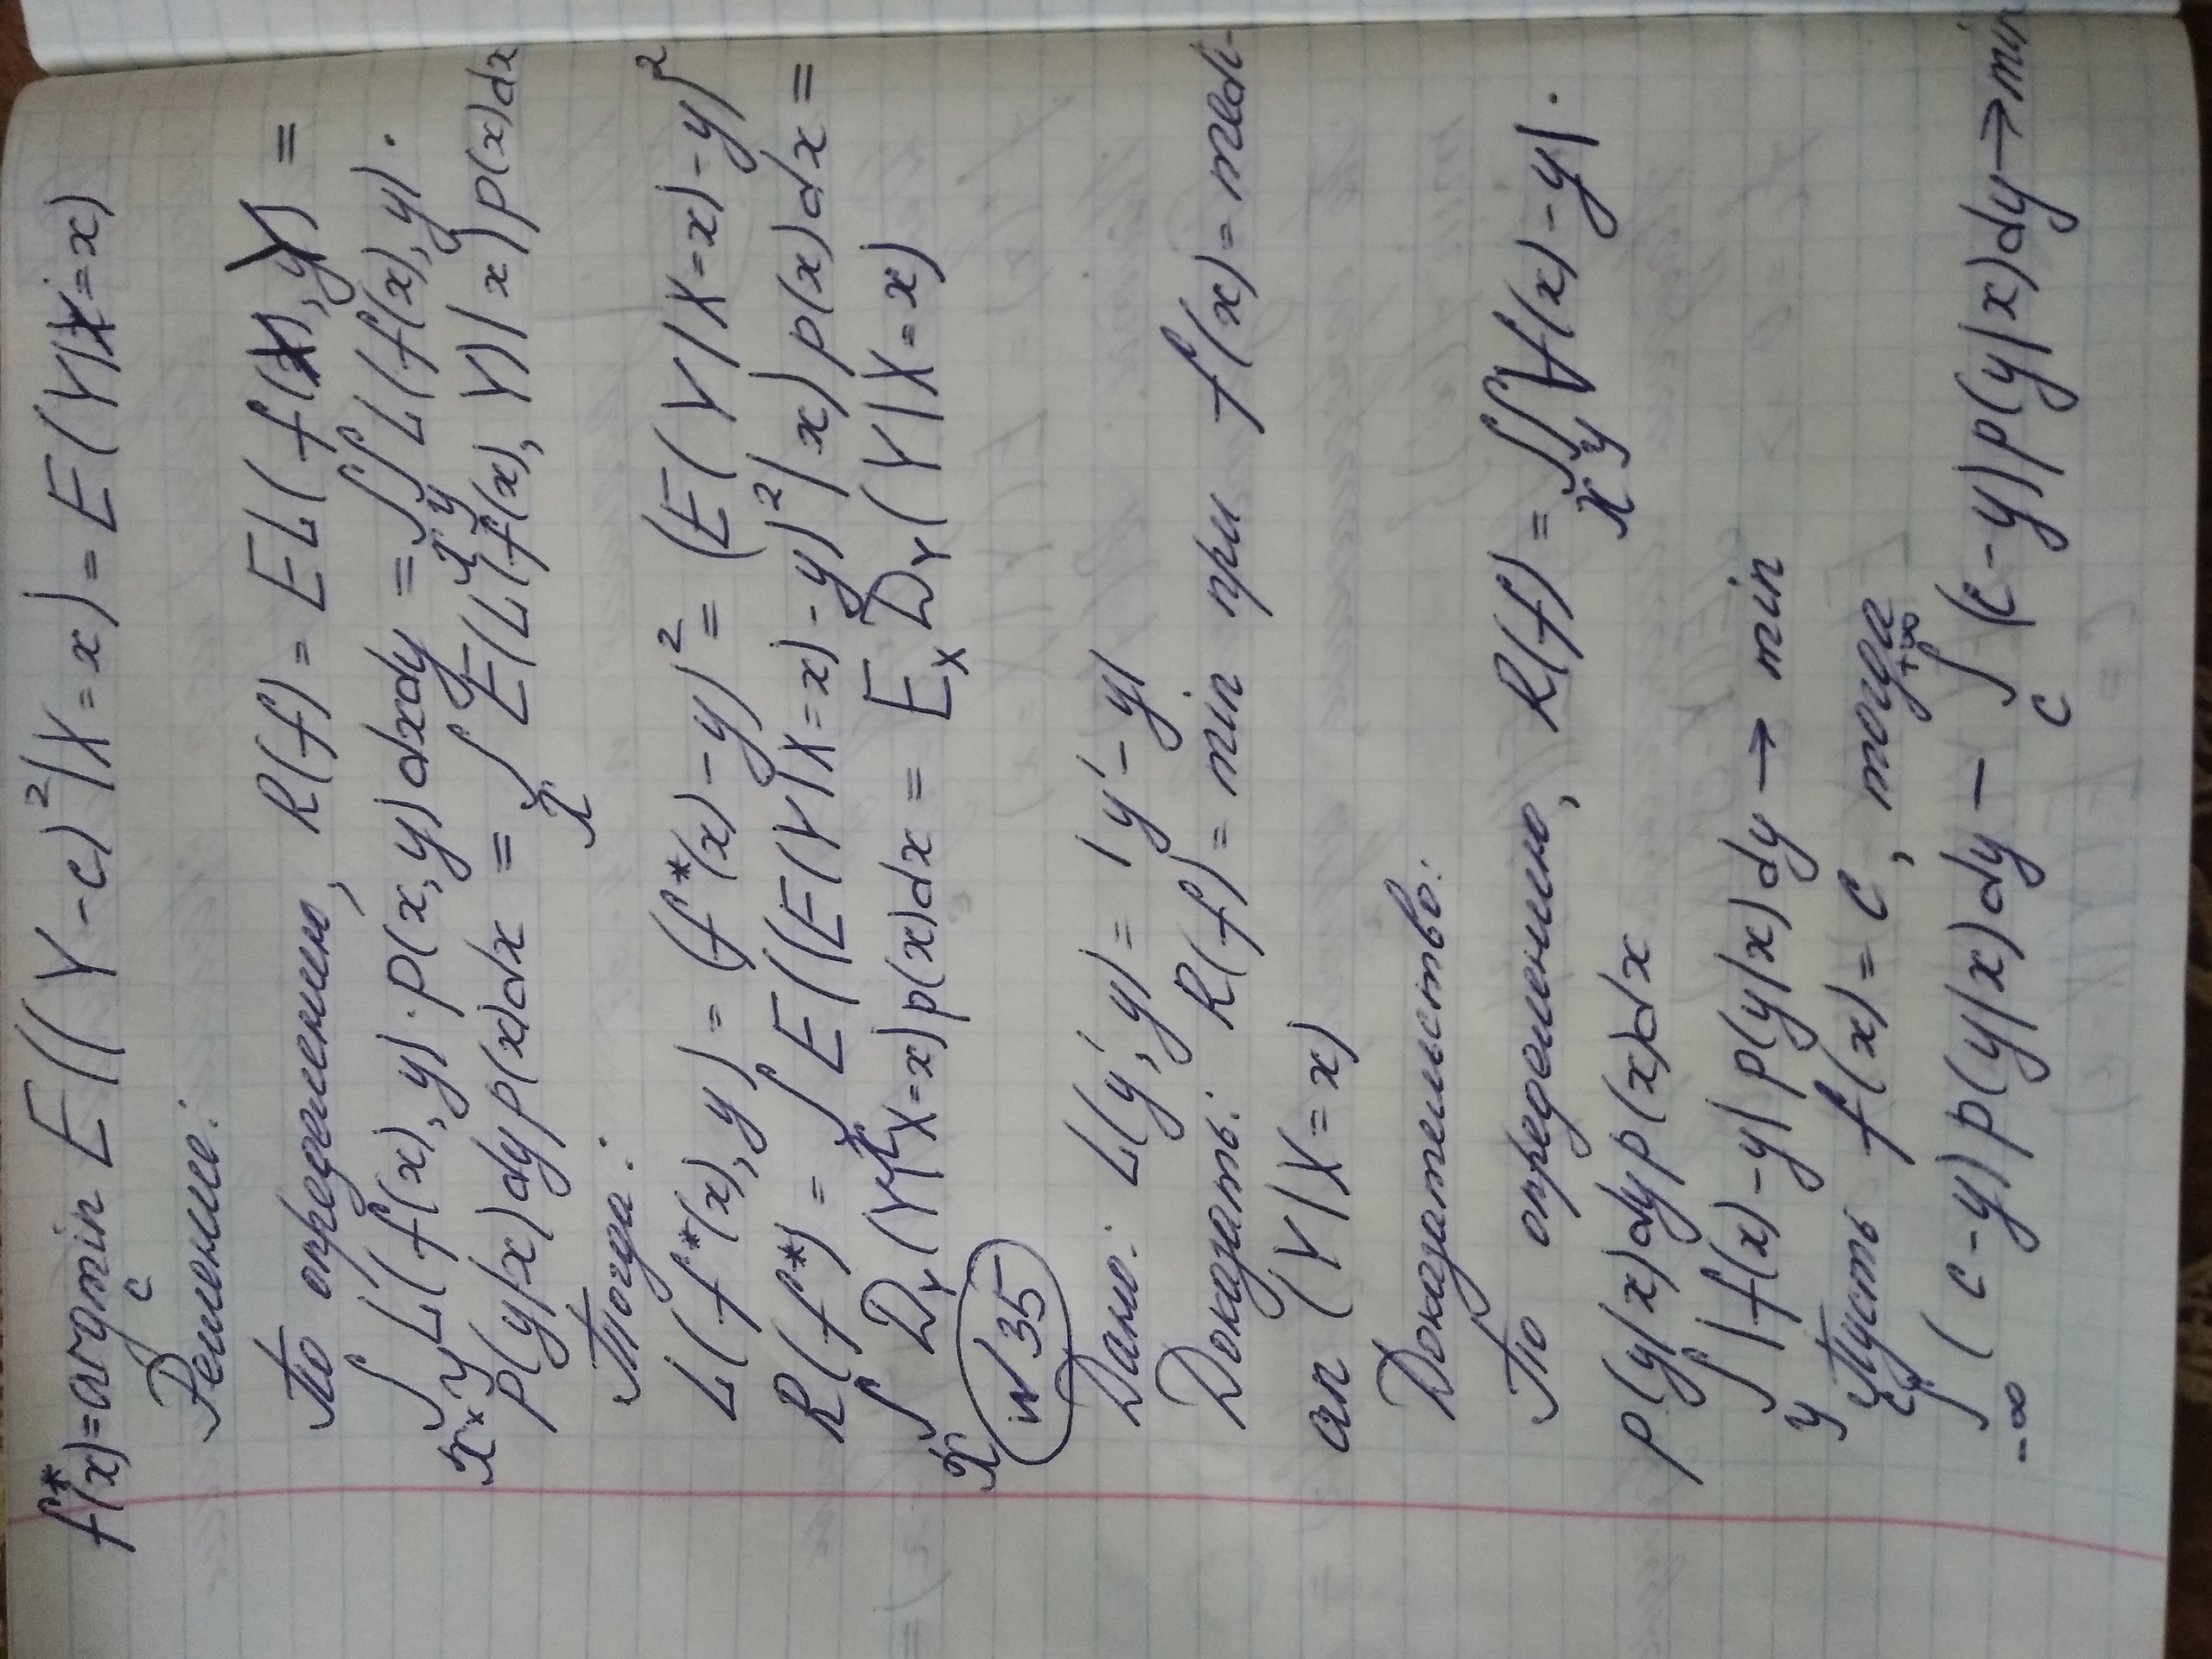 f*(x) = argmin E((Y - c)²|X = x) = E(Y|X = x)
c
Решение:
По определению, R(f) = EL(f(X), Y) =
∫ L(f(x), y) · p(x, y) dxdy = ∫∫ L(f(x), y) ·
X×Y X Y
p(y|x) dy p(x) dx = ∫ E(L(f(x), Y)|x) p(x) dx
X
Тогда:
L(f*(x), y) = (f*(x) - y)² = (E(Y|X = x) - y)²
R(f*) = ∫ E((E(Y|X = x) - y)²|x) p(x) dx =
X
∫ D_Y (Y|X = x) p(x) dx = E_X D_Y (Y|X = x)
X
№ 35
Дано: L(y', y) = |y' - y|
Доказать: R(f) = min при f(x) = medi-
an (Y|X = x)
Доказательство:
По определению, R(f) = ∫∫ |f(x) - y| ·
X Y
p(y|x) dy p(x) dx
∫ |f(x) - y| p(y|x) dy → min
Y
Пусть f(x) = c, тогда
c +∞
∫ (c - y) p(y|x) dy - ∫ (c - y) p(y|x) dy → min
-∞ c